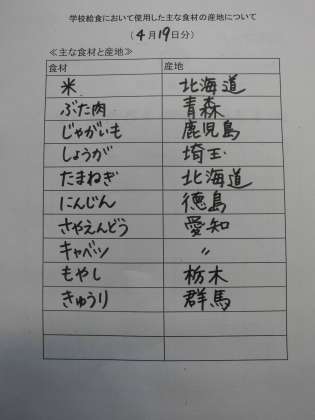 学校給食において使用した主な食材の産地について
(4月19日分)
≪主な食材と産地≫
食材 産地
米 北海道
ぶた肉 青森
じゃがいも 鹿児島
しょうが 埼玉
たまねぎ 北海道
にんじん 徳島
さやえんどう 愛知
キャベツ 〃
もやし 栃木
きゅうり 群馬